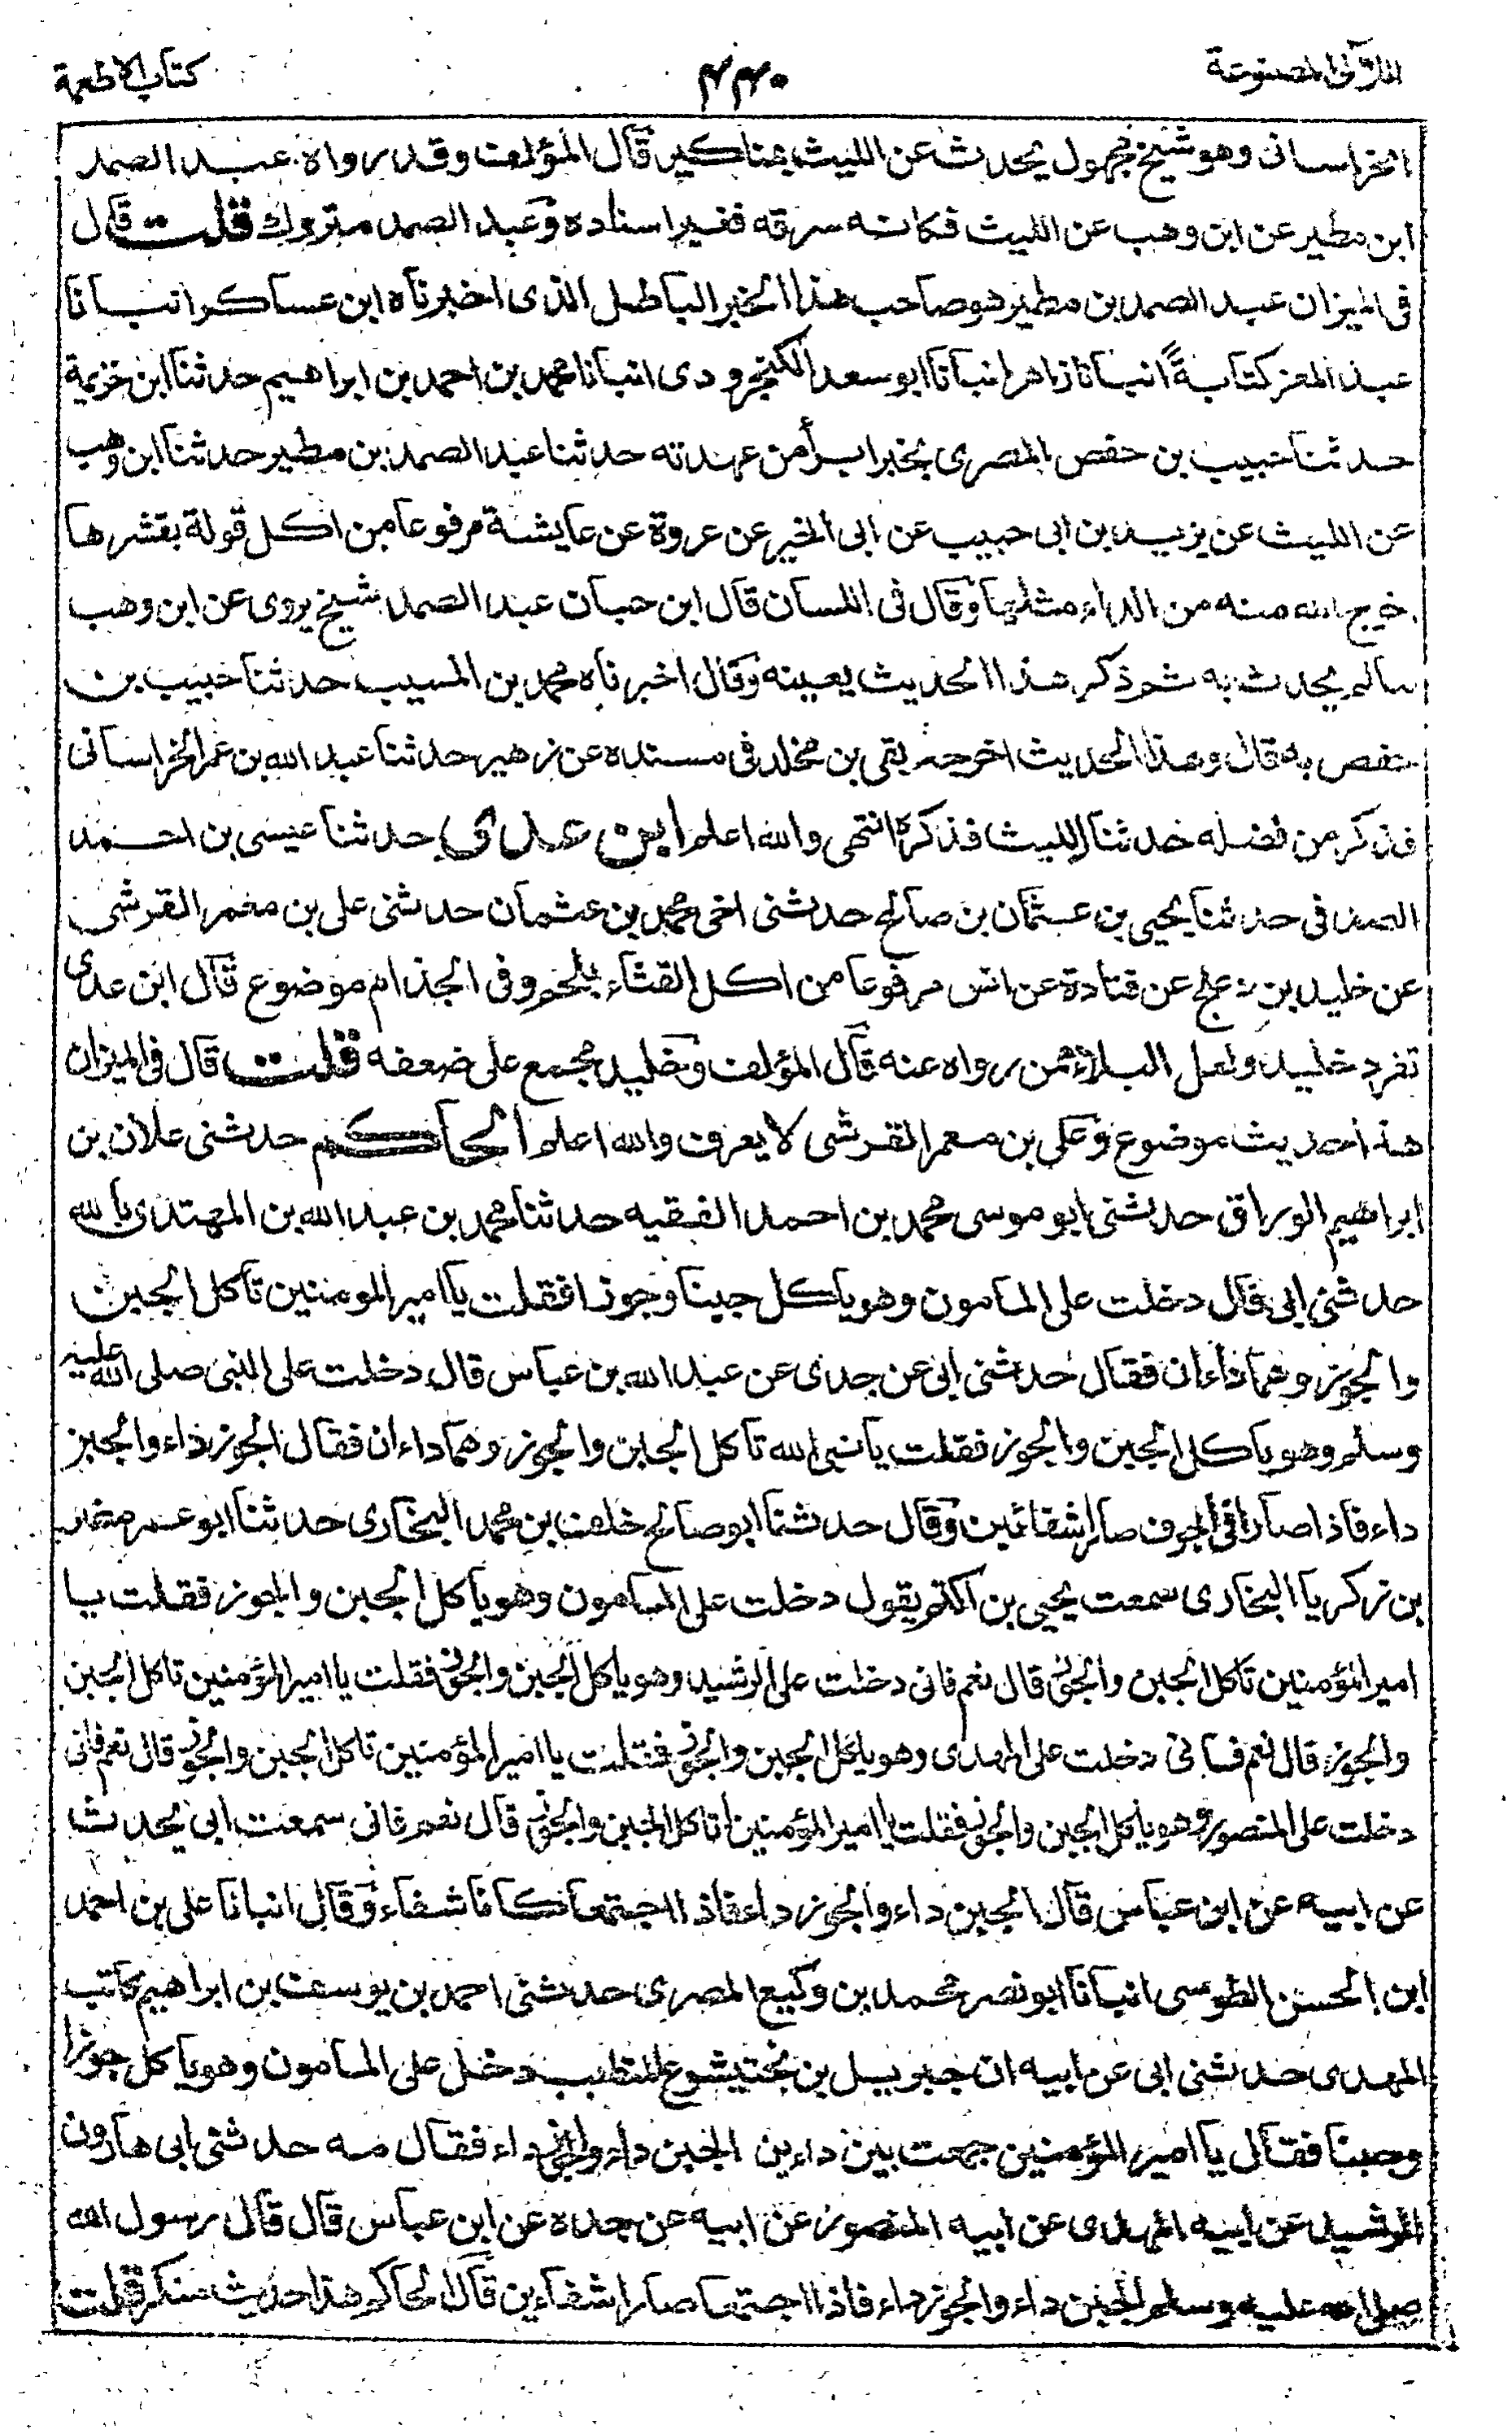 اللآلى المصنوعة
كتاب الاطعمة
الخراسانى وهو شيخ مجهول يحدث عن الليث بمناكير قال المؤلف وقد رواه عبد الصمد
ابن مطير عن ابن وهب عن الليث فكانه سرقه فغير اسناده وعبد الصمد متروك قلت قال
فى الميزان عبد الصمد بن مطير هو صاحب هذا الخبر الباطل الذى اخبرناه ابن عساكر انبانا
عبد المعز كتابةً انبانا زاهر انبانا ابو سعد الكنجرودى انبانا محمد بن احمد بن ابراهيم حدثنا ابن خزيمة
حدثنا حبيب بن حفص المصرى بخبر ابرأ من عهدته حدثنا عبد الصمد بن مطير حدثنا ابن وهب
عن الليث عن يزيد بن ابى حبيب عن ابى الخير عن عروة عن عايشة مرفوعا من اكل فولة بقشرها
خرج الله منه من الداء مثلها وقال فى اللسان قال ابن حبان عبد الصمد شيخ يروى عن ابن وهب
مالم يحدث به ثم ذكر هذا الحديث بعينه وقال اخبرناه محمد بن المسيب حدثنا حبيب بن
حفص به قال وهذا الحديث اخرجه بقى بن مخلد فى مسنده عن زهير حدثنا عبد الله بن عمر الخراسانى
فذكر من فضله حدثنا الليث فذكره انتهى والله اعلم ابن عدى حدثنا عيسى بن احمد
الصدفى حدثنا يحيى بن عثمان بن صالح حدثنى اخى محمد بن عثمان حدثنى على بن معمر القرشى
عن خليد بن دعلج عن قتادة عن انس مرفوعا من اكل القثاء بلحم وقى الجذام موضوع قال ابن عدى
تفرد خليد ولعل البلاء ممن رواه عنه قال المؤلف وخليد مجمع على ضعفه قلت قال فى الميزان
هذا حديث موضوع وعلى بن معمر القرشى لا يعرف والله اعلم الحاكم حدثنى علان بن
ابراهيم الوراق حدثنى ابو موسى محمد بن احمد الفقيه حدثنا محمد بن عبد الله بن المهتدى بالله
حدثنى ابى قال دخلت على المامون وهو ياكل جبنا وجوزا فقلت يا امير المومنين تاكل الجبن
والجوز وهما داءان فقال حدثنى ابى عن جدى عن عبد الله بن عباس قال دخلت على النبى صلى الله عليه
وسلم وهو ياكل الجبن والجوز فقلت يا نبى الله تاكل الجبن والجوز وهما داءان فقال الجوز داء والجبن
داء فاذا صارا فى الجوف صارا شفائين وقال حدثنا ابو صالح خلف بن محمد البخارى حدثنا ابو عمر
بن زكريا البخارى سمعت يحيى بن اكثم يقول دخلت على المامون وهو ياكل الجبن والجوز فقلت يا
امير المؤمنين تاكل الجبن والجوز قال نعم فانى دخلت على الرشيد وهو ياكل الجبن والجوز فقلت يا امير المؤمنين تاكل الجبن
والجوز قال نعم فانى دخلت على المهدى وهو ياكل الجبن والجوز فقلت يا امير المؤمنين تاكل الجبن والجوز قال نعم فانى
دخلت على المنصور وهو ياكل الجبن والجوز فقلت يا امير المؤمنين اتاكل الجبن والجوز قال نعم فانى سمعت ابى يحدث
عن ابيه عن ابن عباس قال الجبن داء والجوز داء فاذا اجتمعا كانا شفاء وقال انبانا على بن احمد
ابن الحسن الطوسى انبانا ابو نصر محمد بن وكيع المصرى حدثنى احمد بن يوسف بن ابراهيم كاتب
المهدى حدثنى ابى عن ابيه ان جبرييل بن بختيشوع المتطبب دخل على المامون وهو ياكل جوزا
وجبنا فقال يا امير المؤمنين جمعت بين داءين الجبن داء والجوز داء فقال مه حدثنى ابى هارون
الرشيد عن ابيه المهدى عن ابيه المنصور عن ابيه عن جده عن ابن عباس قال قال رسول الله
صلى الله عليه وسلم الجبن داء والجوز داء فاذا اجتمعا صارا شفاءين قال الحاكم هذا حديث منكر قلت